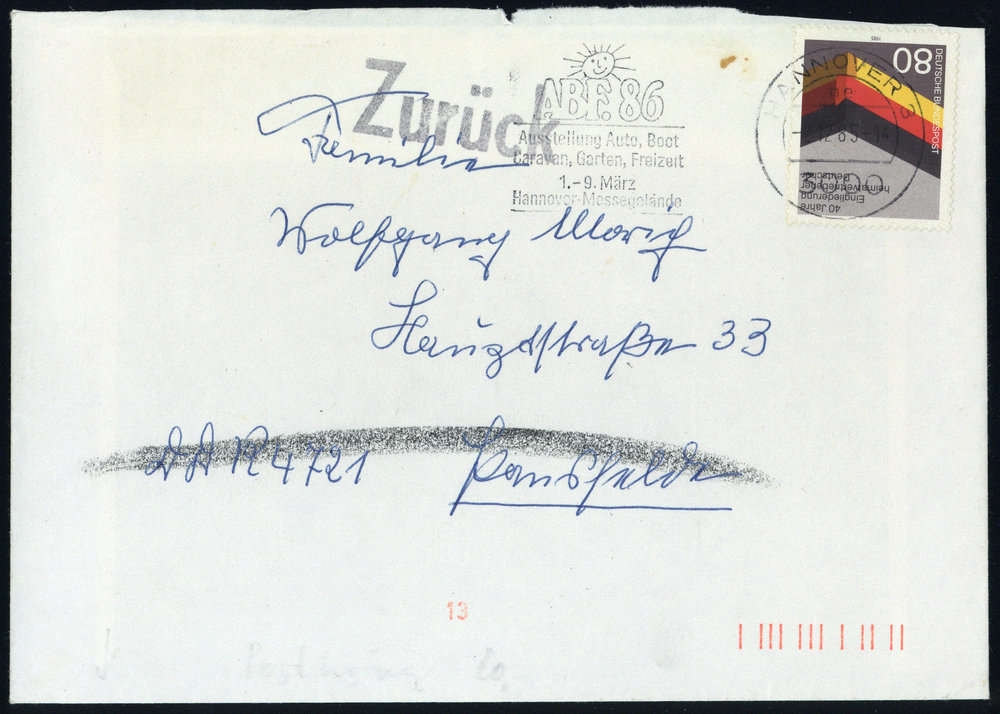 Zurück
ABF.86
Ausstellung Auto, Boot
Caravan, Garten, Freizeit
1.-9. März
Hannover-Messegelände
HANNOVER 3
3000
80
DEUTSCHE BUNDESPOST
1985
40 Jahre
Eingliederung
heimatvertriebener
Deutscher
Familie
Wolfgang
Hauptstraße 33
DDR 4721 Pansfelde
13